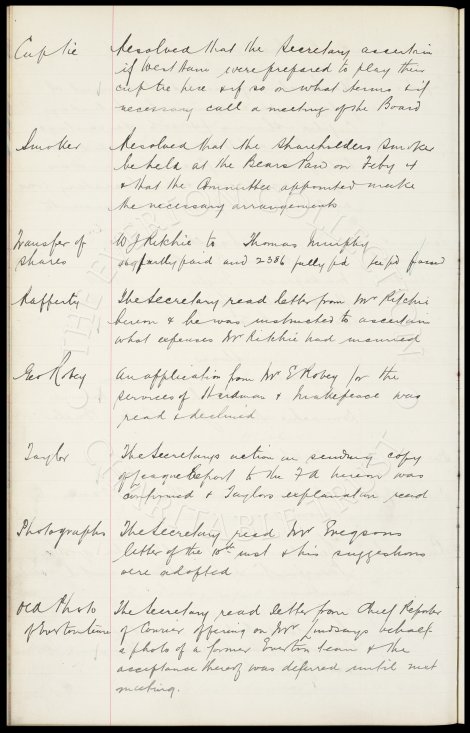 Cup tie Resolved that the Secretary ascertain
if West Ham were prepared to play their
cup tie here & if so on what terms & if
necessary call a meeting of the Board
Smoker Resolved that the shareholders smoker
be held at the Bears Paw on Feby 4
& that the Committee appointed make
the necessary arrangements
Transfer of W J Ritchie to Thomas Murphy
shares partly paid and 2386 fully pd passed
Rafferty The Secretary read letter from Mr Ritchie
hereon & he was instructed to ascertain
what expenses Mr Ritchie had incurred
Geo Robey An application from Mr E Robey for the
services of Hardman & Makepeace was
read & declined
Taylor The Secretarys action in sending copy
of League Report to the F A hereon was
confirmed & Taylors explanation read
Photographs The Secretary read Mr
letter of the 10th inst & his suggestions
were adopted
Old Photo The Secretary read letter from Chief Reporter
of Everton team of Courier offering on Mr Lindsays behalf
a photo of a former Everton team & the
acceptance thereof was deferred until next
meeting.